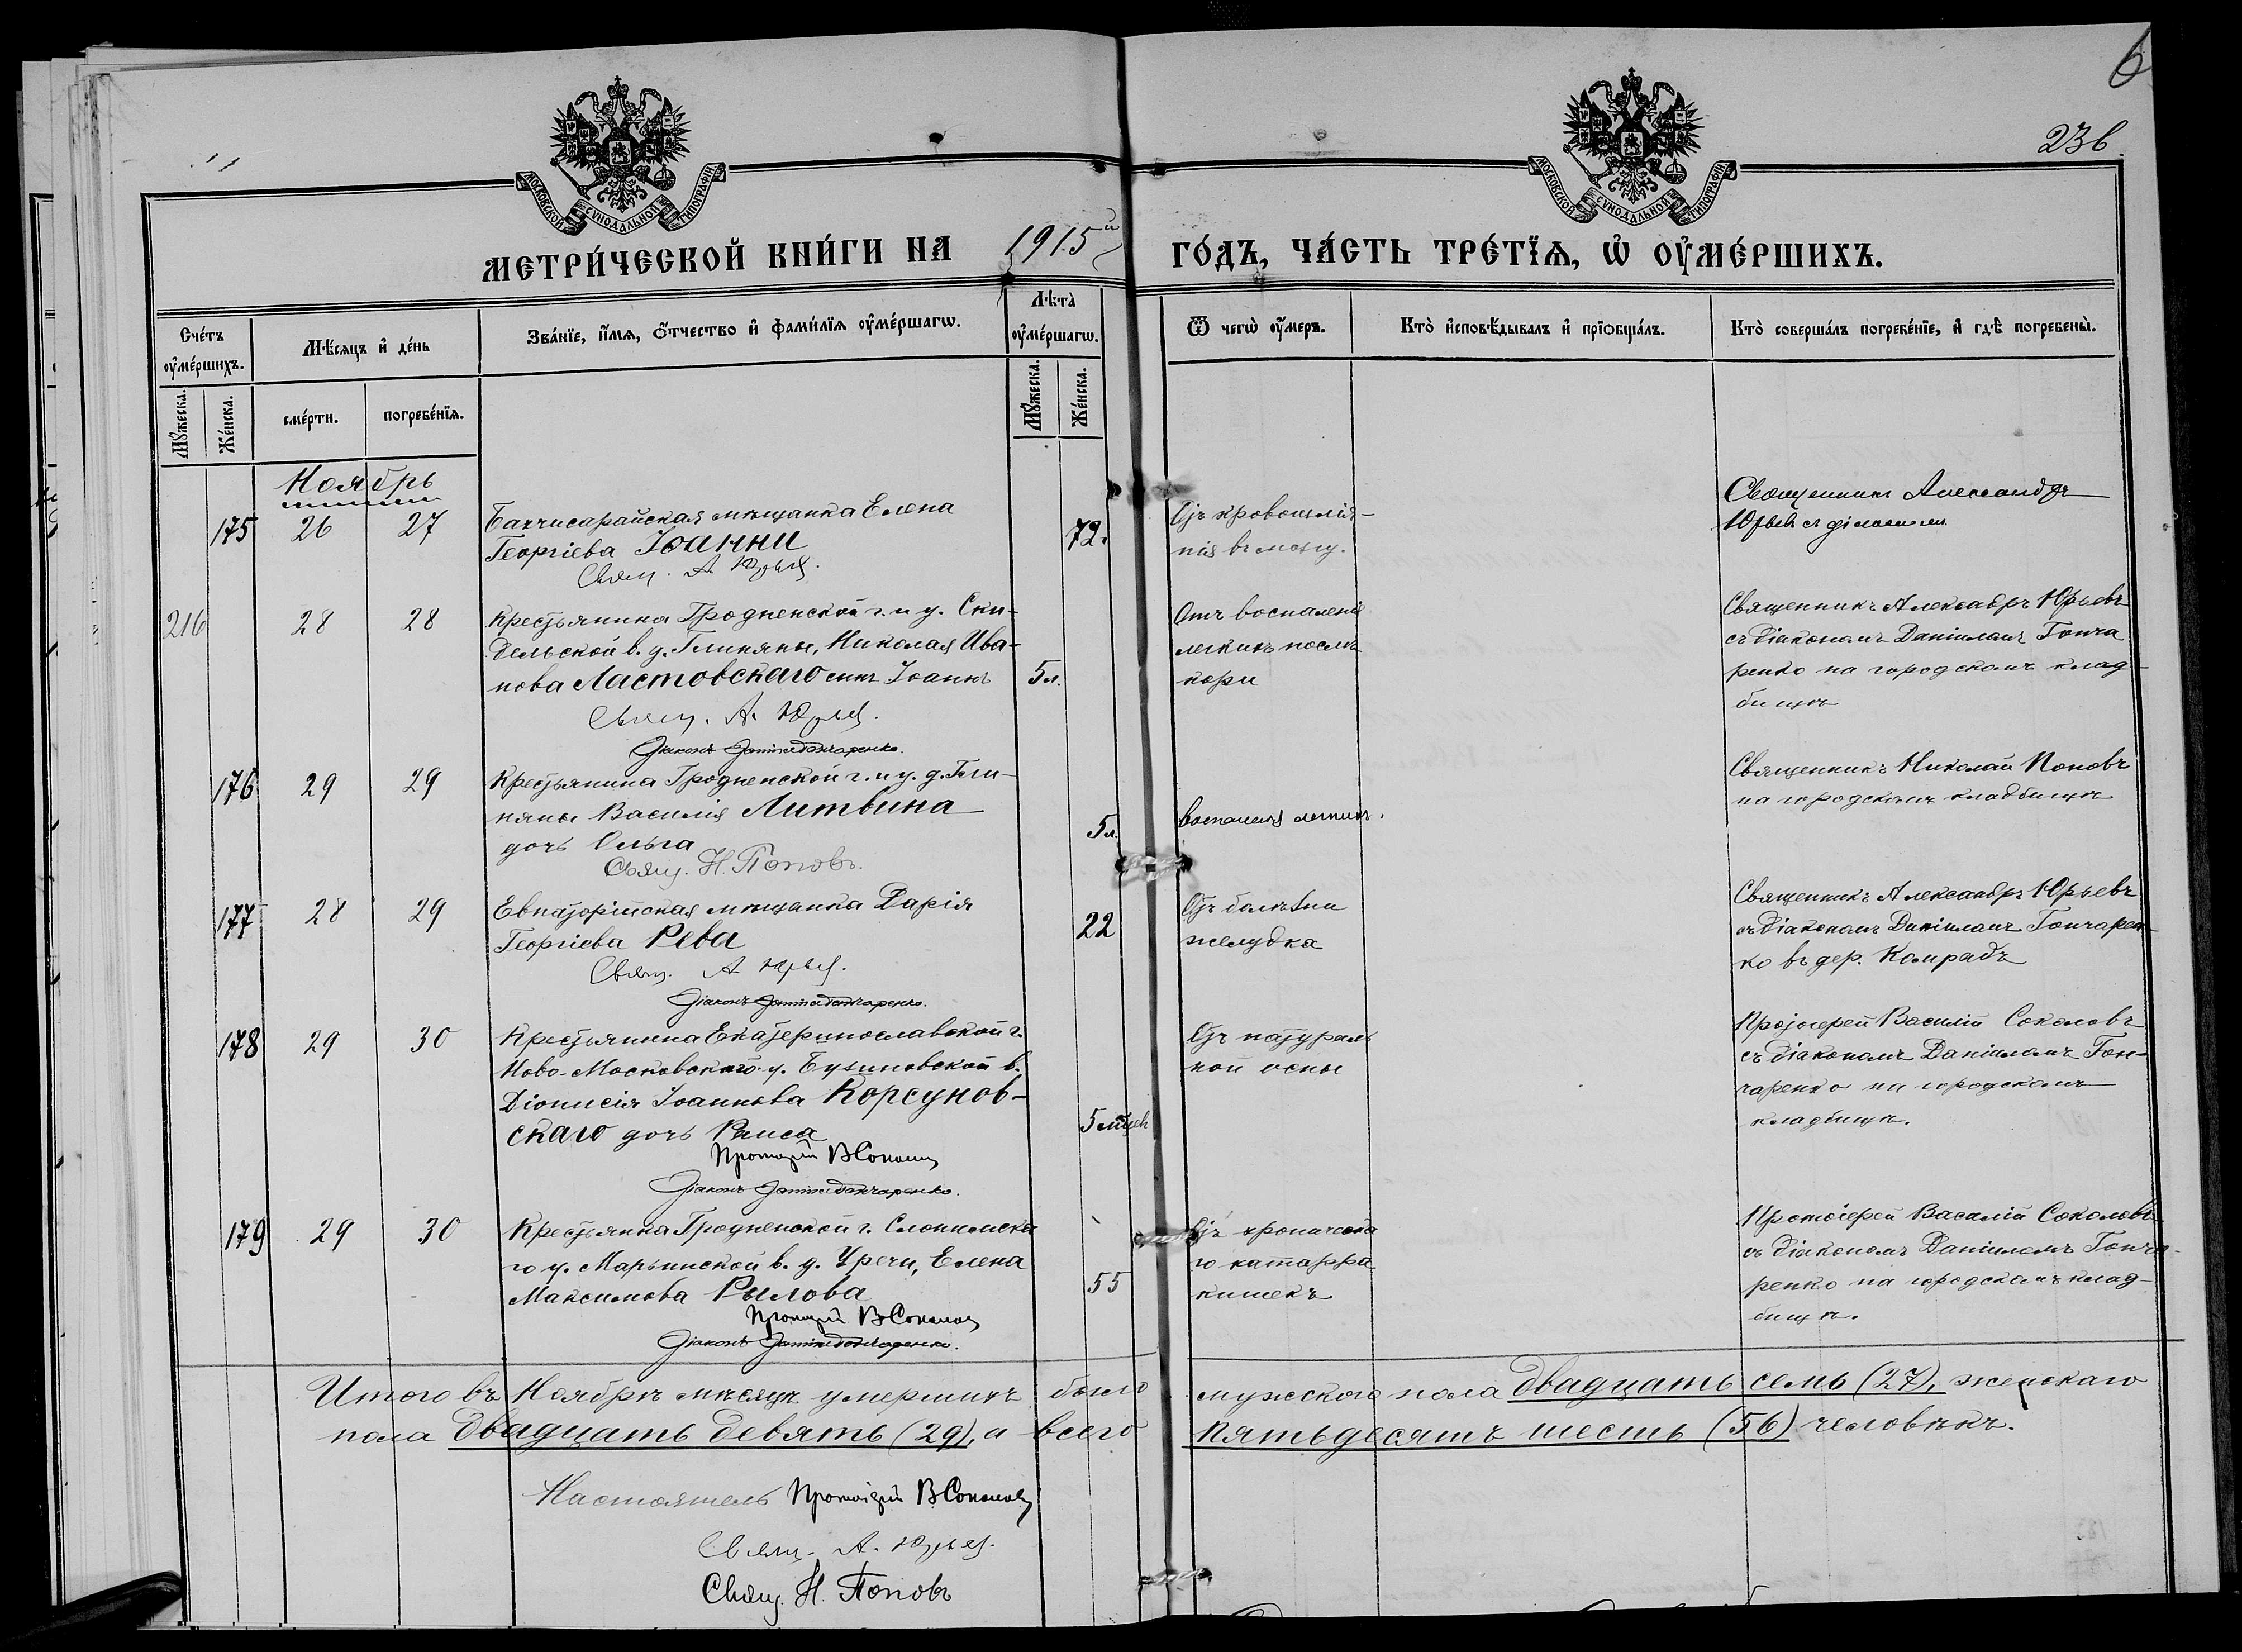 6
236
МОСКОВСКОЙ СѴНОДАЛЬНОЙ ТИПОГРАФІИ
МОСКОВСКОЙ СѴНОДАЛЬНОЙ ТИПОГРАФІИ
МЕТРИ́ЧЕСКОЙ КНИ́ГИ НА 1915й ГО́ДЪ, ЧА́СТЬ ТРЕ́ТЇѦ, Ѡ҆ ОУ҆МЕ́РШИХЪ.
Сче́тъ оу҆ме́ршихъ.
Мꙋ́жеска.
Же́нска.
Мѣ́сяцъ и҆ де́нь
сме́рти.
погребе́нїѧ.
Зва́нїе, и҆́мѧ, ѻ҆́тчество и҆ фами́лїѧ оу҆ме́ршагѡ.
Лѣта̀ оу҆ме́ршагѡ.
Мꙋ́жеска.
Же́нска.
Ѿ чегѡ̀ оу҆́меръ.
Кто̀ и҆сповѣ́дывалъ и҆ прїѻбща́лъ.
Кто̀ соверша́лъ погребе́нїе, и҆ гдѣ̀ погребены̀.
Ноябрь
175 26 27
Бахчисарайская мѣщанка Елена
Георгіева Іоанни
Свящ. А. Юрьев.
72
Отъ кровоизлія-
нія въ мозгу.
Священникъ Александръ
Юрьев съ
216 28 28
Крестьянина Гродненской г. и у. Ски-
дельской в. д. Глиняны, Николая Ива-
нова Ластовскаго сынъ Іоаннъ
5 л.
Свящ. А. Юрьев.
Діаконъ Даніилъ Гончаренко.
Отъ воспаленія
легкихъ послѣ
кори
Священникъ Александръ Юрьевъ
съ діакономъ Даніиломъ Гонча
ренко на городскомъ клад-
бищѣ
176 29 29
Крестьянина Гродненской г. и у. д. Гли-
няны Василія Литвина
дочь Ольга
5 л.
Свящ. Н. Поповъ.
воспаленія легкихъ.
Священникъ Николай Поповъ
на городскомъ кладбищѣ
177 28 29
Евпаторійская мѣщанка Дарія
Георгіева Рева
22
Свящ. А. Юрьев.
Діаконъ Даніилъ Гончаренко.
Отъ болѣзни
желудка
Священникъ Александръ Юрьевъ
съ діакономъ Даніиломъ Гончарен-
ко въ дер. Комрадъ
178 29 30
Крестьянина Екатеринославской г.
Ново-Московскаго у. Бузиновской в.
Діонисія Іоаннова Корсунов-
скаго дочь Раиса
5 мѣсец
Протоіерей В Соколов
Діаконъ Даніилъ Гончаренко.
Отъ натураль
ной оспы
Протоіерей Василій Соколовъ
съ діакономъ Даніиломъ Гон-
чаренко на городскомъ
кладбищѣ.
179 29 30
Крестьянка Гродненской г. Слонимска
го у. Марьинской в. д. Уречи, Елена
Максимова Рылова
55
Протоіерей В Соколов
Діаконъ Даніилъ Гончаренко.
Отъ хроническа
го катарра
кишекъ
Протоіерей Василій Соколовъ
съ діакономъ Даніиломъ Гонча-
ренко на городскомъ клад-
бищѣ.
Итого въ Ноябрѣ мѣсяцѣ умершихъ было мужскаго пола двадцать семь (27), женскаго
пола двадцать девять (29), а всего пятьдесятъ шесть (56) человѣкъ.
Настоятель Протоіерей В. Соколов
Свящ. А. Юрьев.
Свящ. Н. Поповъ